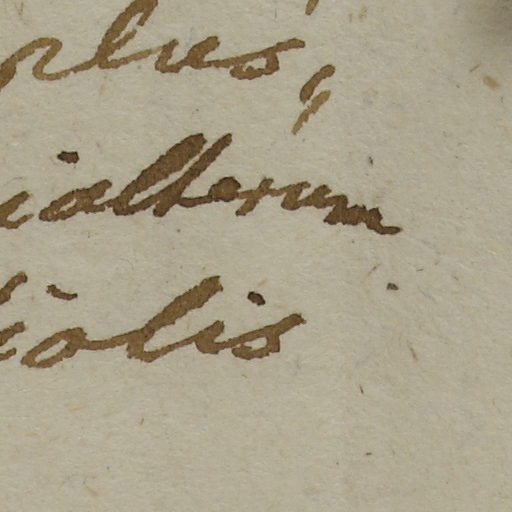 plus,
ialterum
iolis